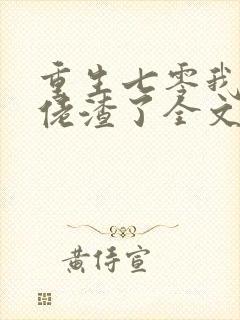 重生七零我
佬渣了全文
黄侍宣